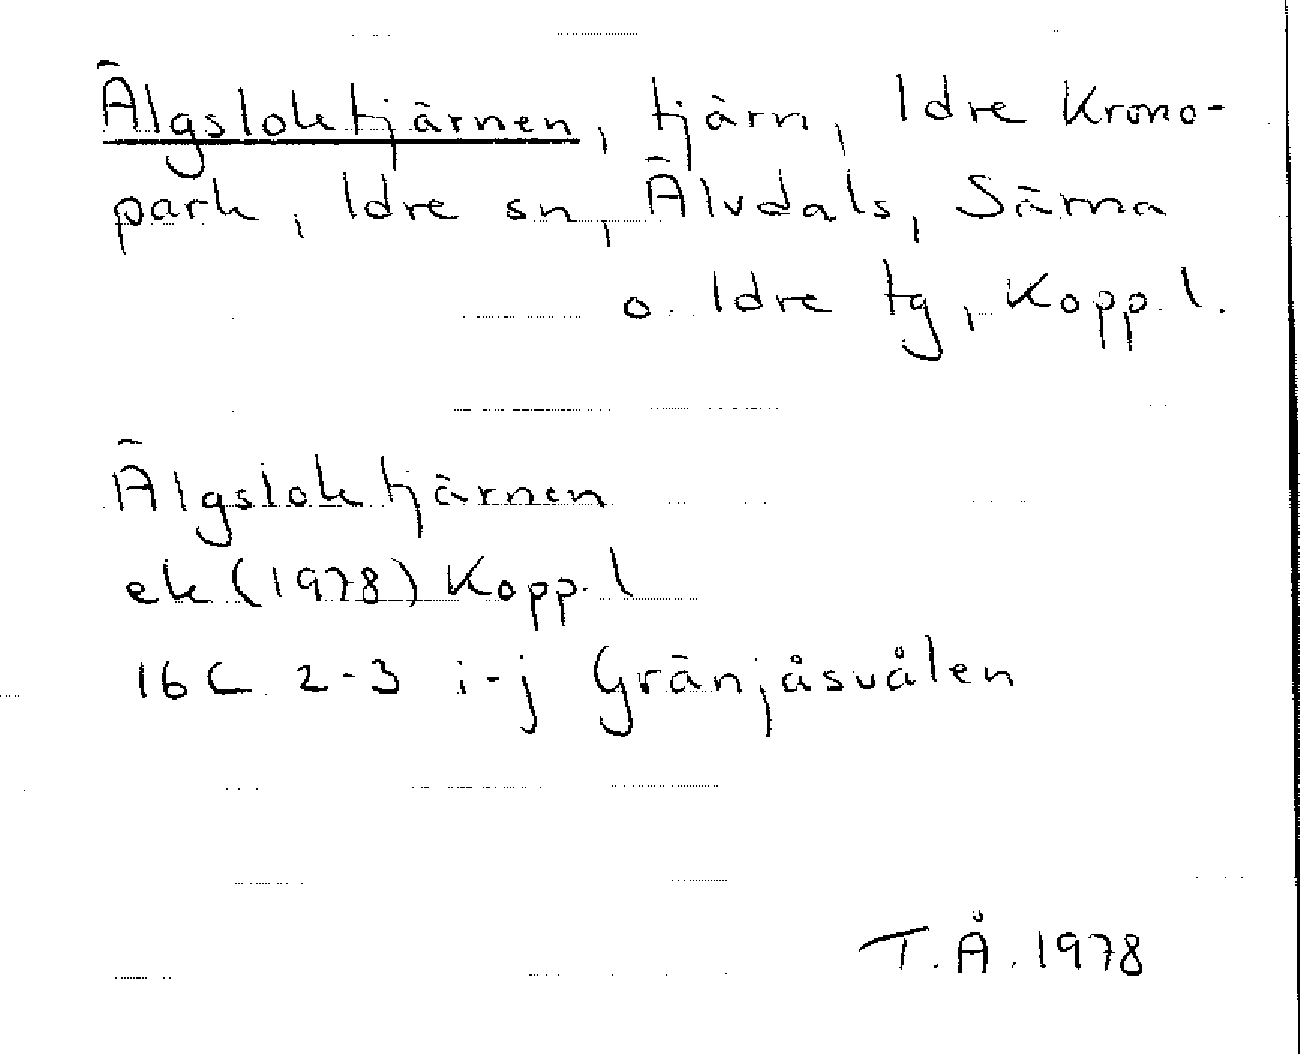 Älgsloktjärnen, tjärn, Idre Krono-
park, Idre sn, Älvdals, Särna
o. Idre tg, Kopp. l.
Älgsloktjärnen
ek (1978) Kopp. l
16C 2-3 i-j Gränjåsvålen
T.Å. 1978